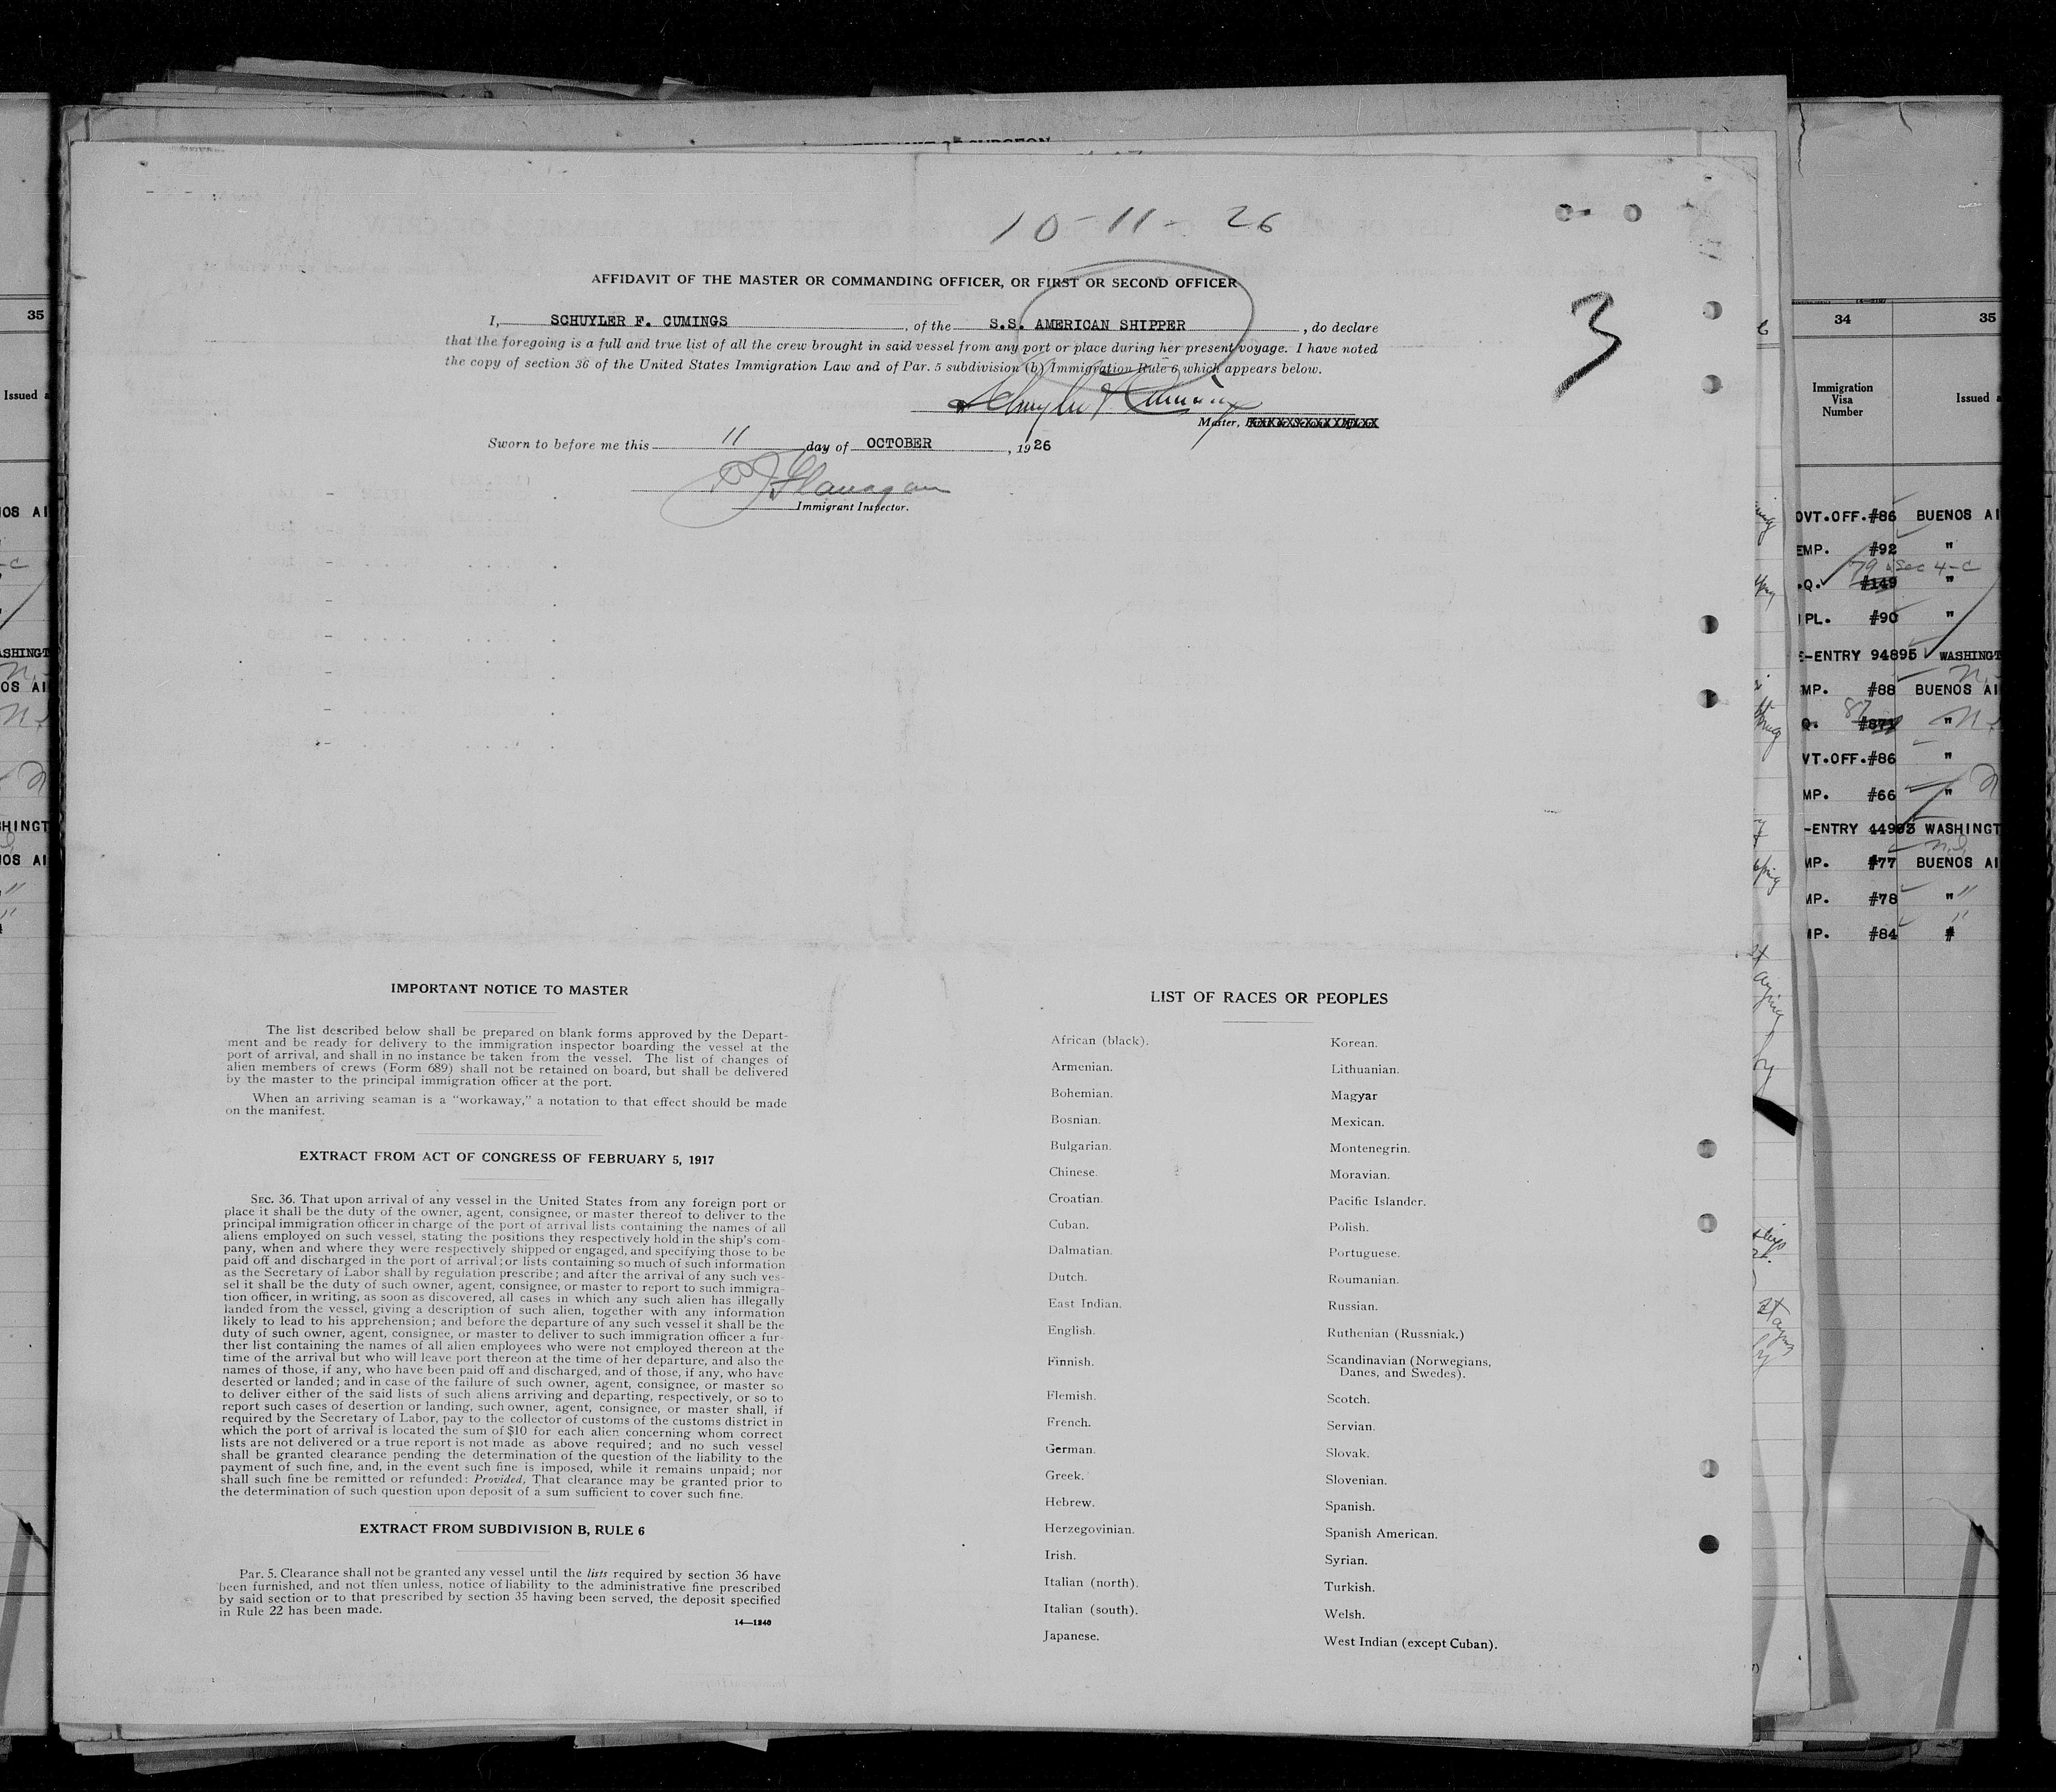 10-11-26
AFFIDAVIT OF THE MASTER OR COMMANDING OFFICER, OR FIRST OR SECOND OFFICER
I, SCHUYLER F. CUMINGS, of the S.S. AMERICAN SHIPPER, do declare
that the foregoing is a full and true list of all the crew brought in said vessel from any port or place during her present voyage. I have noted
the copy of section 36 of the United States Immigration Law and of Par. 5 subdivision (b) Immigration Rule 6, which appears below.
3
Schuyler F. Cumings
Master,
Sworn to before me this 11 day of OCTOBER, 1926
P J Flanagan
Immigrant Inspector.
IMPORTANT NOTICE TO MASTER
The list described below shall be prepared on blank forms approved by the Depart-
ment and be ready for delivery to the immigration inspector boarding the vessel at the
port of arrival, and shall in no instance be taken from the vessel. The list of changes of
alien members of crews (Form 689) shall not be retained on board, but shall be delivered
by the master to the principal immigration officer at the port.
When an arriving seaman is a “workaway,” a notation to that effect should be made
on the manifest.
EXTRACT FROM ACT OF CONGRESS OF FEBRUARY 5, 1917
SEC. 36. That upon arrival of any vessel in the United States from any foreign port or
place it shall be the duty of the owner, agent, consignee, or master thereof to deliver to the
principal immigration officer in charge of the port of arrival lists containing the names of all
aliens employed on such vessel, stating the positions they respectively hold in the ship's com-
pany, when and where they were respectively shipped or engaged, and specifying those to be
paid off and discharged in the port of arrival; or lists containing so much of such information
as the Secretary of Labor shall by regulation prescribe; and after the arrival of any such ves-
sel it shall be the duty of such owner, agent, consignee, or master to report to such immigra-
tion officer, in writing, as soon as discovered, all cases in which any such alien has illegally
landed from the vessel, giving a description of such alien, together with any information
likely to lead to his apprehension; and before the departure of any such vessel it shall be the
duty of such owner, agent, consignee, or master to deliver to such immigration officer a fur-
ther list containing the names of all alien employees who were not employed thereon at the
time of the arrival but who will leave port thereon at the time of her departure, and also the
names of those, if any, who have been paid off and discharged, and of those, if any, who have
deserted or landed; and in case of the failure of such owner, agent, consignee, or master so
to deliver either of the said lists of such aliens arriving and departing, respectively, or so to
report such cases of desertion or landing, such owner, agent, consignee, or master shall, if
required by the Secretary of Labor, pay to the collector of customs of the customs district in
which the port of arrival is located the sum of $10 for each alien concerning whom correct
lists are not delivered or a true report is not made as above required; and no such vessel
shall be granted clearance pending the determination of the question of the liability to the
payment of such fine, and, in the event such fine is imposed, while it remains unpaid; nor
shall such fine be remitted or refunded: Provided, That clearance may be granted prior to
the determination of such question upon deposit of a sum sufficient to cover such fine.
EXTRACT FROM SUBDIVISION B, RULE 6
Par. 5. Clearance shall not be granted any vessel until the lists required by section 36 have
been furnished, and not then unless, notice of liability to the administrative fine prescribed
by said section or to that prescribed by section 35 having been served, the deposit specified
in Rule 22 has been made.
14—1240
LIST OF RACES OR PEOPLES
African (black).
Armenian.
Bohemian.
Bosnian.
Bulgarian.
Chinese.
Croatian.
Cuban.
Dalmatian.
Dutch.
East Indian.
English.
Finnish.
Flemish.
French.
German.
Greek.
Hebrew.
Herzegovinian.
Irish.
Italian (north).
Italian (south).
Japanese.
Korean.
Lithuanian.
Magyar
Mexican.
Montenegrin.
Moravian.
Pacific Islander.
Polish.
Portuguese.
Roumanian.
Russian.
Ruthenian (Russniak.)
Scandinavian (Norwegians,
Danes, and Swedes).
Scotch.
Servian.
Slovak.
Slovenian.
Spanish.
Spanish American.
Syrian.
Turkish.
Welsh.
West Indian (except Cuban).
34
35
Immigration
Visa
Number
Issued a
OVT.OFF.#86 BUENOS AI
EMP. #92 "
79 Sec 4-c
.Q. #149 "
PL. #90 "
-ENTRY 94895 WASHINGT
MP. #88 BUENOS AI
87
Q. "
VT.OFF.#86 "
MP. #66 "
-ENTRY 44903 WASHINGT
MP. #77 BUENOS AI
MP. #78 "
MP. #84
35
Issued a
OS AI
ASHINGT
OS AI
SHINGT
OS AI